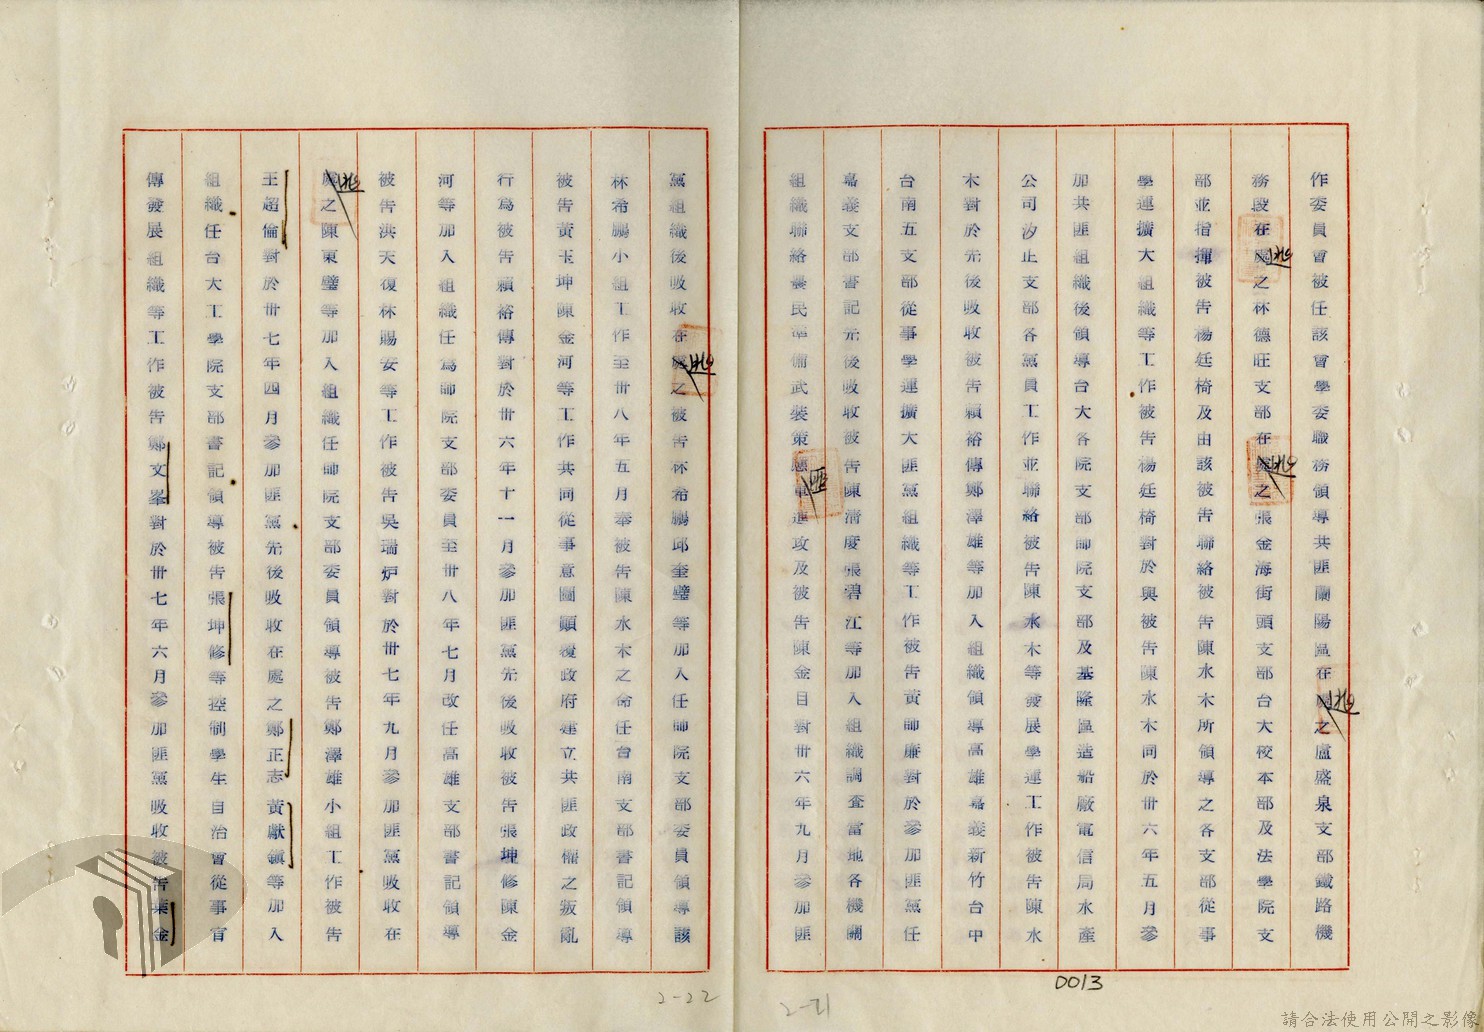 作委員會被任該會學委職務領導共匪蘭陽區在逃之盧盛泉支部鐵路機
務段在逃之林德旺支部在逃之張金海街頭支部台大校本部及法學院支
部並指揮被告楊廷椅及由該被告聯絡被告陳水木所領導之各支部從事
學運擴大組織等工作被告楊廷椅對於與被告陳水木同於卅六年五月參
加共匪組織後領導台大各院支部師院支部及基隆區造船廠電信局水產
公司汐止支部各黨員工作並聯絡被告陳水木等發展學運工作被告陳水
木對於先後吸收被告賴裕傳鄭澤雄等加入組織領導高雄嘉義新竹台中
台南五支部從事學運擴大匪黨組織等工作被告黃師廉對於參加匪黨任
嘉義支部書記先後吸收被告陳清度張碧江等加入組織調查當地各機關
組織聯絡農民準備武裝策應匪軍進攻及被告陳金目對卅六年九月參加匪
黨組織後吸收在逃之被告林希鵬邱奎璧等加入任師院支部委員領導該
林希鵬小組工作至卅八年五月奉被告陳水木之命任台南支部書記領導
被告黃玉坤陳金河等工作共同從事意圖顛覆政府建立共匪政權之叛亂
行為被告賴裕傳對於卅六年十一月參加匪黨先後吸收被告張坤修陳金
河等加入組織任為師院支部委員至卅八年七月改任高雄支部書記領導
被告洪天復林賜安等工作被告吳瑞炉對於卅七年九月參加匪黨吸收在
逃之陳東璧等加入組織任師院支部委員領導被告鄭澤雄小組工作被告
王超倫對於卅七年四月參加匪黨先後吸收在處之鄭正志黃獻鎮等加入
組織任台大工學院支部書記領導被告張坤修等控制學生自治會從事宣
傳發展組織等工作被告鄭文峯對於卅七年六月參加匪黨吸收被告葉金
2-22
2-21
0013
請合法使用公開之影像